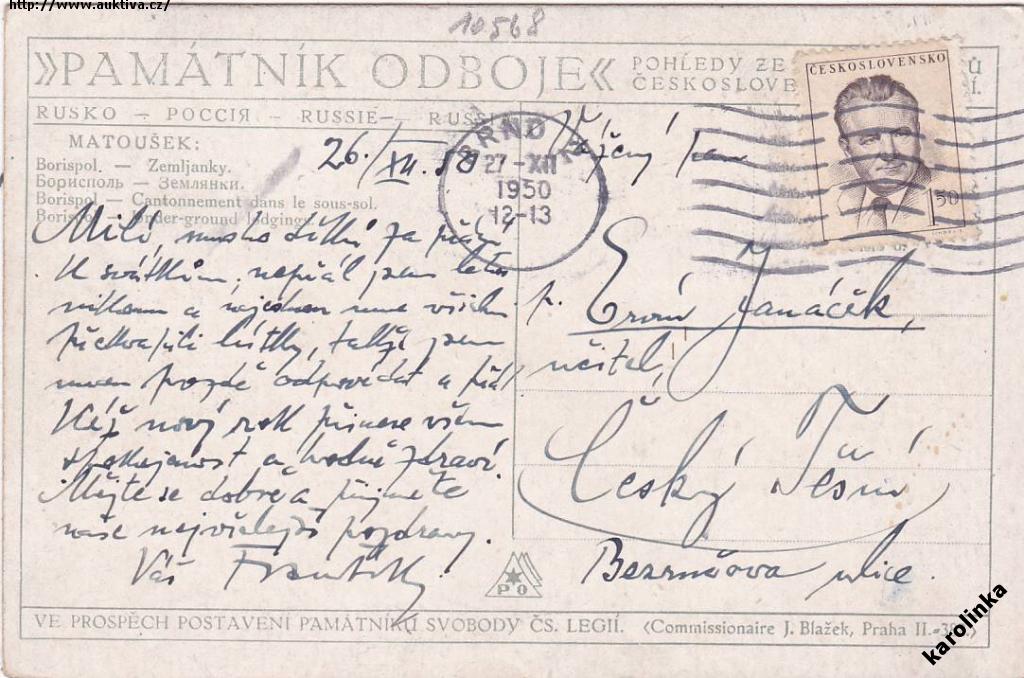 http://www.auktiva.cz/
10568
»PAMÁTNÍK ODBOJE«
POHLEDY ZE
ČESKOSLOVE
RUSKO – РОССІЯ – RUSSIE – RUSSI
MATOUŠEK:
Borispol. — Zemljanky.
Борисполь — Землянки.
Borispol — Cantonnement dans le sous-sol.
Borispol — Under-ground lodgings
26./XII. 50
BRNO
27-XII
1950
12-13
ČESKOSLOVENSKO
1 50
Vážený Pan
Milí, mnoho díků za přání
k svátkům, nepřál jsem letos
nikomu a najednou mne všichni
překvapili lístky, takže jsem
musel pozdě odpovídat a přát
Kéž nový rok přinese všem
spokojenost a hodně zdraví.
Mějte se dobře a přijměte
naše nejvřelejší pozdravy.
Váš František
p. Ervín Janáček,
učitel,
Český Těšín
Bezručova ulice.
PO
VE PROSPĚCH POSTAVENÍ PAMÁTNÍKU SVOBODY ČS. LEGIÍ. (Commissionaire J. Blažek, Praha II.-
karolinka